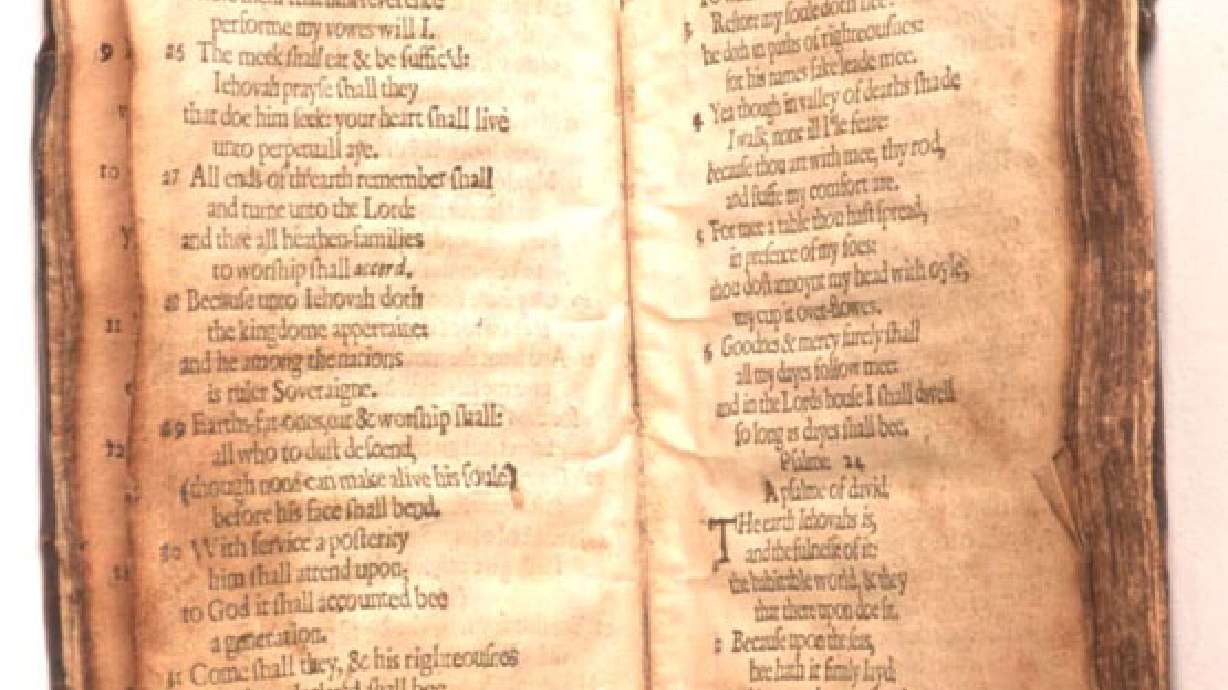 performe my vowes will I.
25 The meek ſhall eat & be ſuffic'd:
Iehovah prayſe ſhall they
that doe him ſeek: your heart ſhall live
unto perpetuall aye.
27 All ends of th'earth remember ſhall
and turne unto the Lord:
and thee all heathen-families
to worſhip ſhall accord.
28 Becauſe unto Iehovah doth
the kingdome appertaine:
and he among the nations
is ruler Soveraigne.
29 Earths-fat-ones, eat & worſhip ſhall:
all who to duſt deſcend,
(though none can make alive his ſoule)
before his face ſhall bend.
30 With ſervice a poſterity
him ſhall attend upon;
to God it ſhall accounted bee
a generation.
31 Come ſhall they, & his righteouſnes
ſhall bee
3 Reſtore my ſoule doth hee:
he doth in paths of righteouſnes:
for his names ſake leade mee.
4 Yea though in valley of deaths ſhade
I walk, none ill I'le feare:
becauſe thou art with mee, thy rod,
and ſtaffe my comfort are.
5 For mee a table thou haſt ſpread,
in preſence of my foes:
thou doſt annoynt my head with oyle,
my cup it over-flowes.
6 Goodnes & mercy ſurely ſhall
all my dayes follow mee:
and in the Lords houſe I ſhall dwell
ſo long as dayes ſhall bee.
Pſalme 24
A pſalme of david.
THe earth Iehovahs is,
and the fulneſſe of it:
the habitable world, & they
that there upon doe ſit.
2 Becauſe upon the ſeas,
hee hath it firmly layd:
9
10
11
12